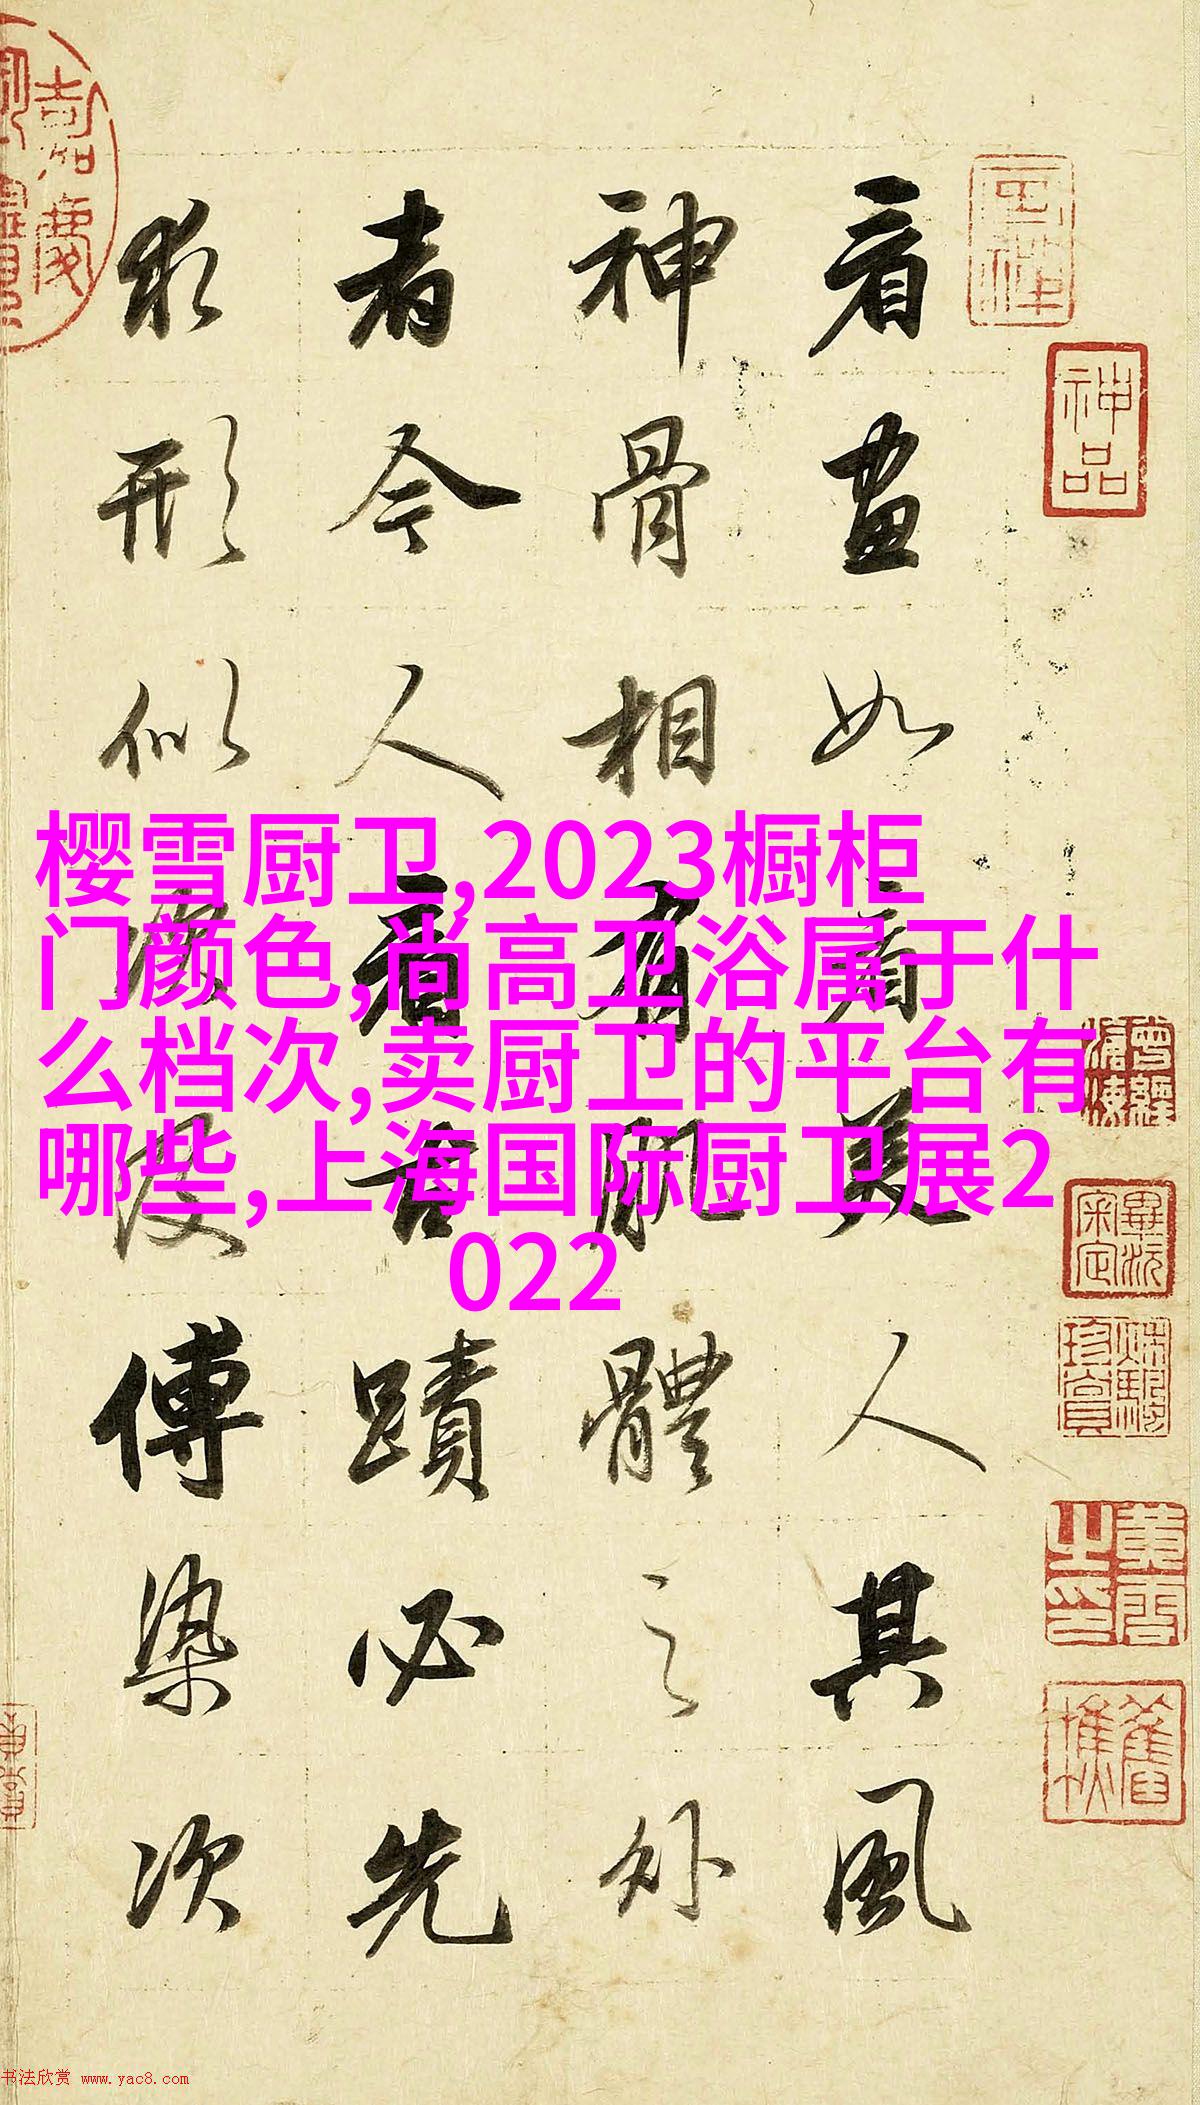 看畫如看美人其風
神骨相有肌體之外
者今人看古蹟必先
求形似傅染次
神品
嘉慶
樱雪厨卫,2023橱柜
门颜色,尚高卫浴属于什
么档次,卖厨卫的平台有
哪些,上海国际厨卫展2
022
书法欣赏 www.yac8.com